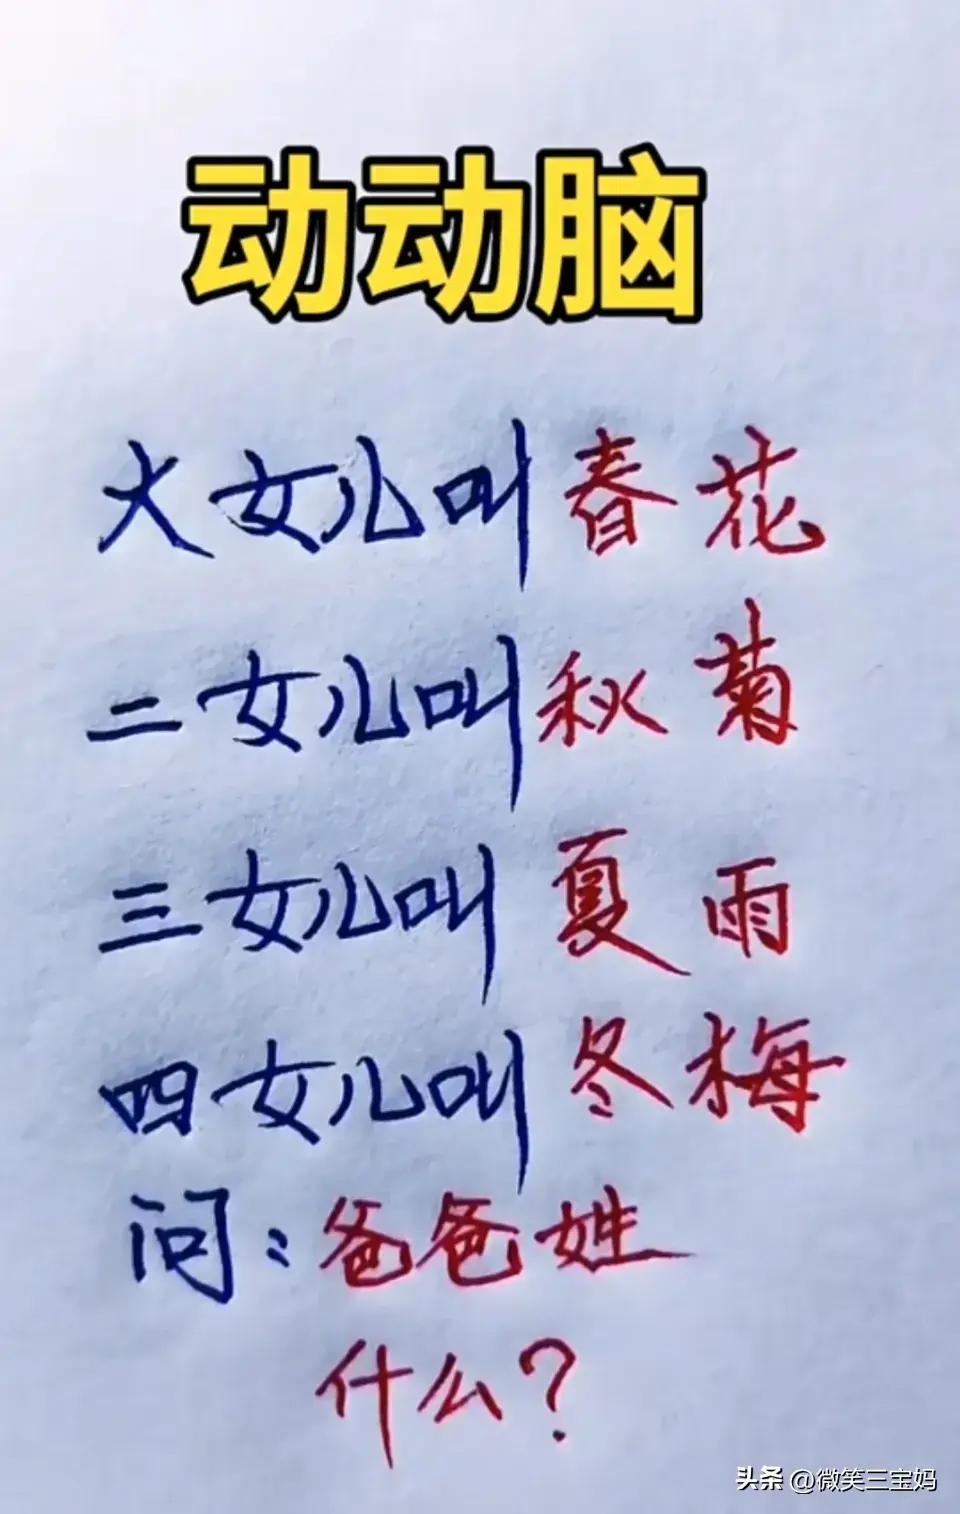 动动脑
大女儿叫春花
二女儿叫秋菊
三女儿叫夏雨
四女儿叫冬梅
问：爸爸姓
什么？
头条 @微笑三宝妈